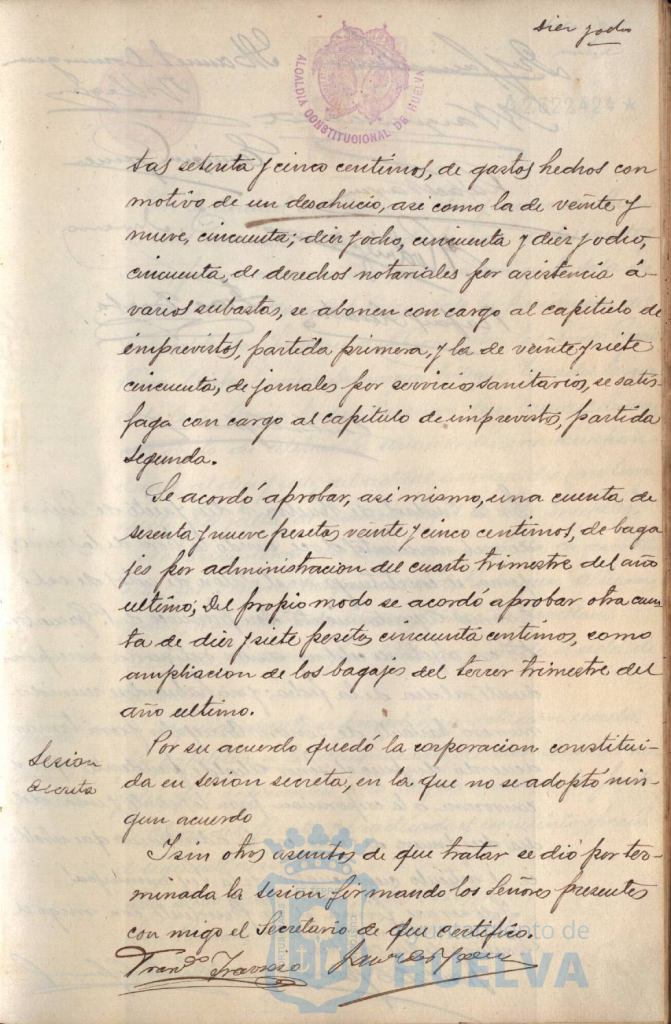 Diez y ocho
ALCALDIA CONSTITUCIONAL DE HUELVA
A2822424 *
tas setenta y cinco centimos, de gastos hechos con
motivo de un desahucio, asi como la de veinte y
nueve, cincuenta; diez y ocho, cincuenta y diez y ocho,
cincuenta, de derechos notariales por asistencia á
varios subastas, se abonen con cargo al capitulo de
imprevistos, partida primera, y la de veinte y siete
cincuenta, de jornales por servicios sanitarios, se satis-
faga con cargo al capitulo de imprevistos, partida
segunda.
Se acordó aprobar, asi mismo, una cuenta de
sesenta y nueve pesetas veinte y cinco centimos, de baga
jes por administracion del cuarto trimestre del año
ultimo; Del propio modo se acordó aprobar otra cuen-
ta de diez y siete pesetas cincuenta centimos, como
ampliacion de los bagajes del tercer trimestre del
año ultimo.
Sesion
secreta
Por su acuerdo quedó la corporacion constitui-
da en sesion secreta, en la que no se adoptó nin-
gun acuerdo
Y sin otros asuntos de que tratar se dió por ter-
minada la sesion firmando los Señores presentes
con migo el Secretario de que certifico.
Ayuntamiento de
HUELVA